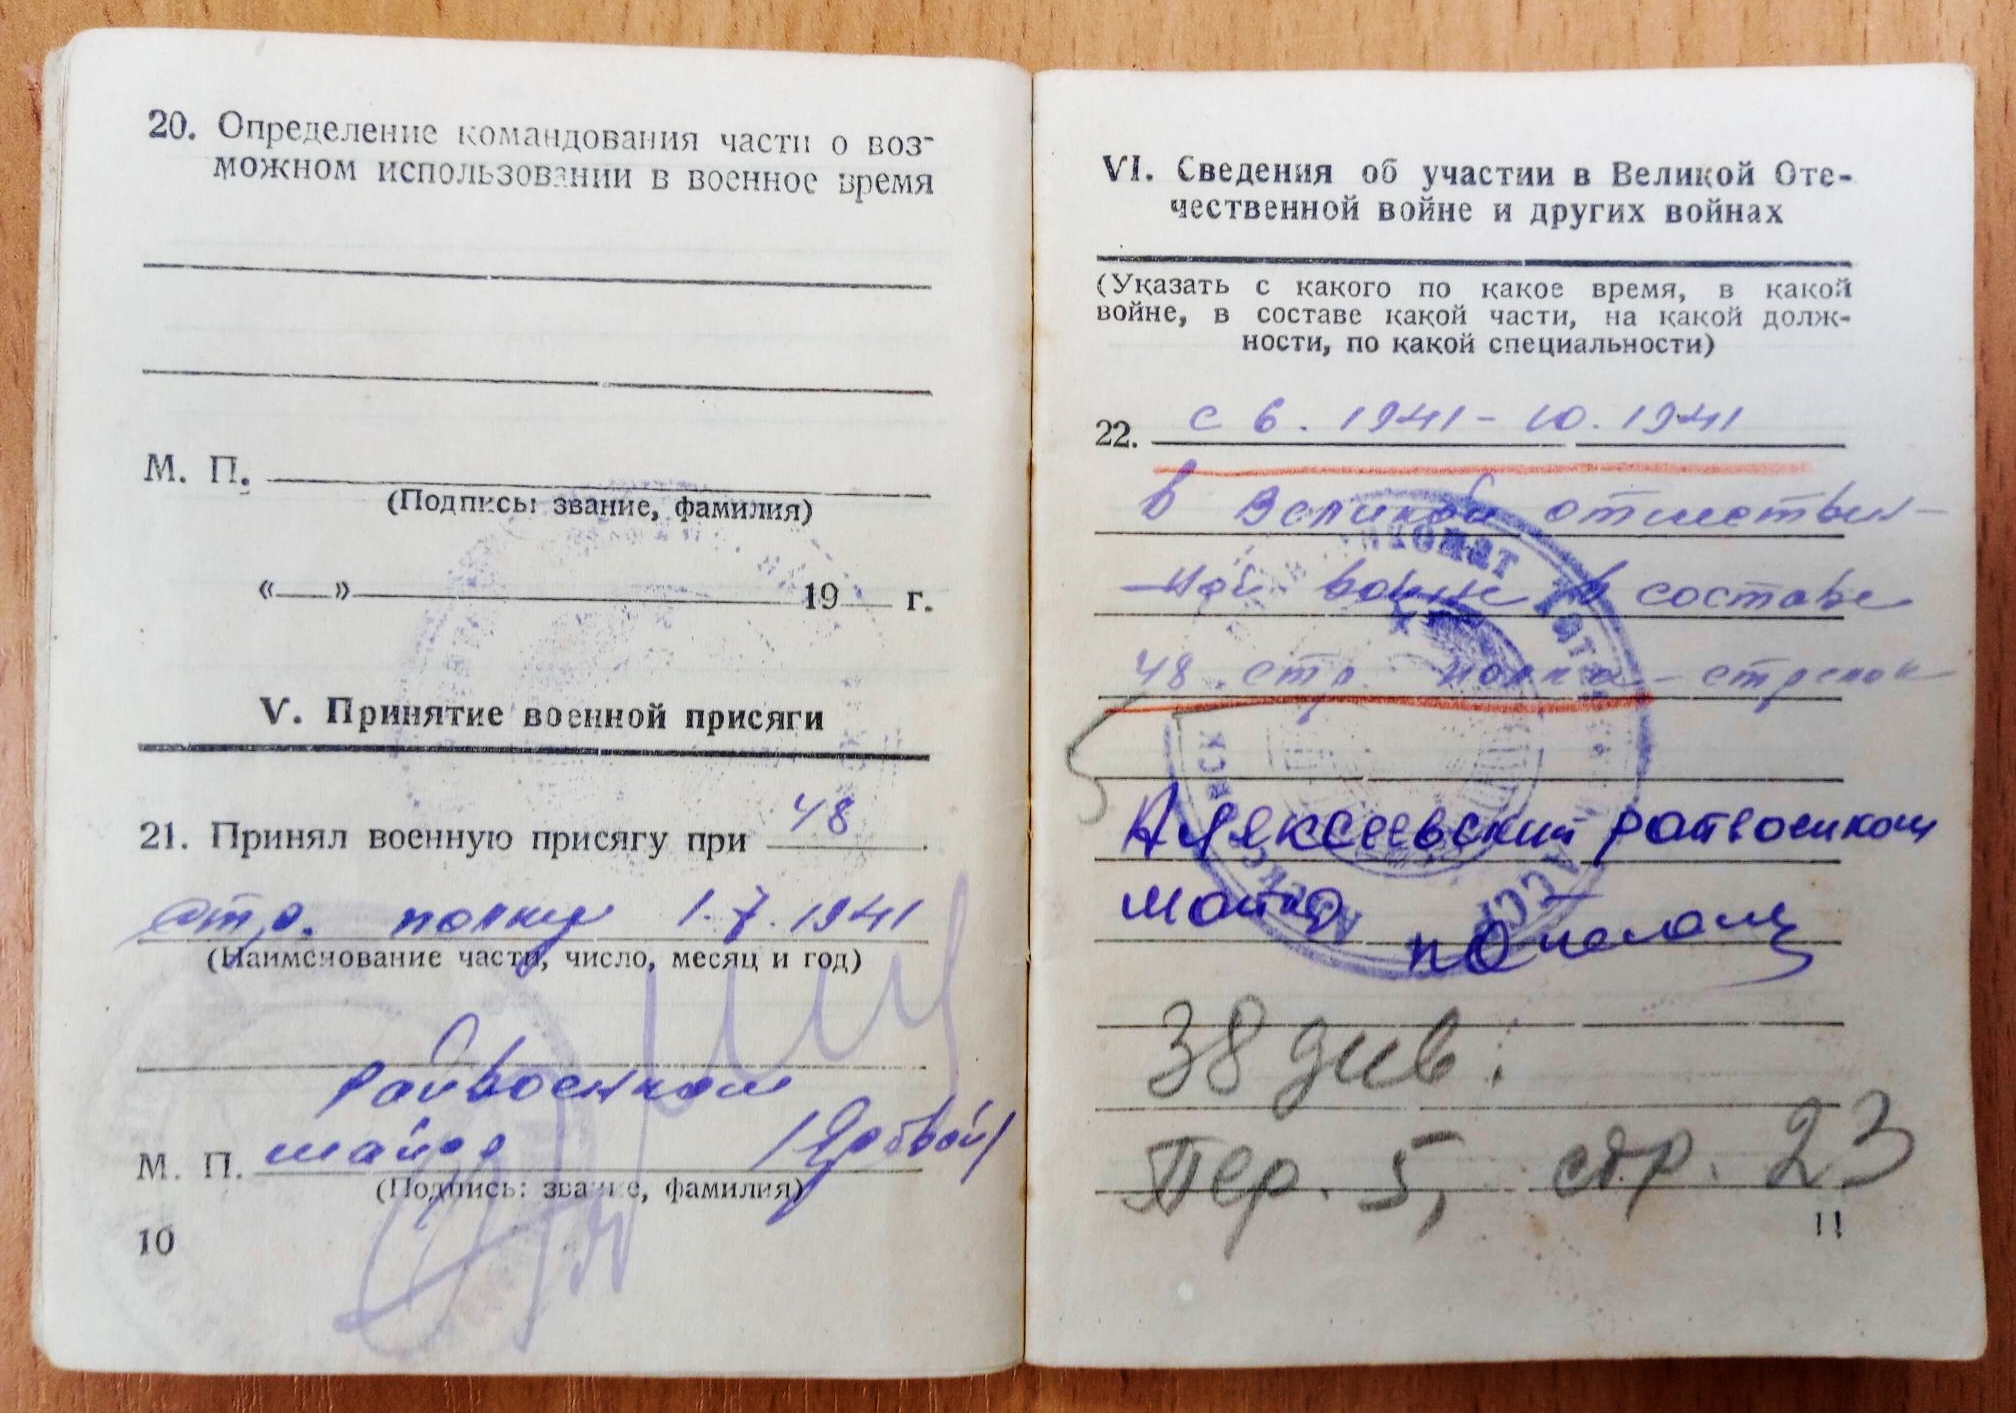 20. Определение команддования части о воз-
можном использовании в военное время
М. П.
(Подпись: звание, фамилия)
«___»___ 19__ г.
V. Принятие военной присяги
21. Принял военную присягу при 48
стр. полку 1.7.1941
(Наименование части, число, месяц и год)
райвоенком
М. П. майор
(Подпись: звание, фамилия)
10
VI. Сведения об участии в Великой Оте-
чественной войне и других войнах
(Указать с какого по какое время, в какой
войне, в составе какой части, на какой долж-
ности, по какой специальности)
22. с 6. 1941 - 10. 1941
в Великой отечествен-
-ной войне в составе
48 стр. полка - стрелок
Алексеевский
майор
38 див.
Пер. 5, стр. 23
11